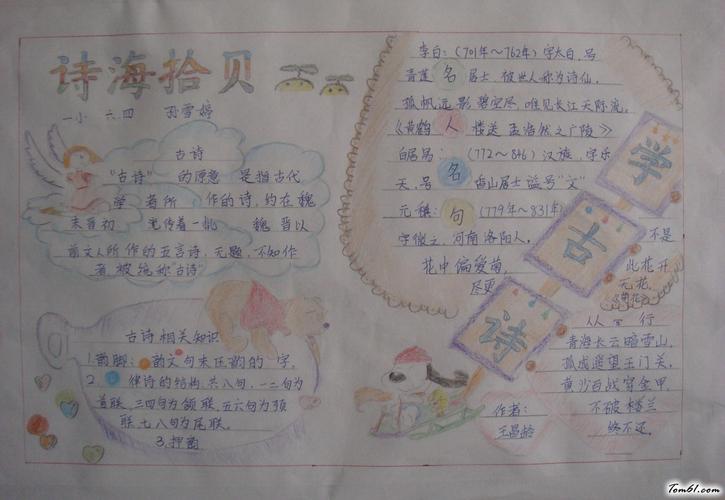 诗海拾贝
一小 六四 孙雪婷
古诗
"古诗" 的原意 是指古代
学者所 作的诗,约在魏
末晋初 流传着一批 魏晋以
前文人所作的五言诗,无题,不知作
者被统称"古诗"
古诗相关知识
1.韵脚: 韵文句末压韵的字。
2. 律诗的结构,共八句,一二句为
首联、三四句为颔联、五六句为颈
联、七八句为尾联。
3.押韵
李白:(701年~762年)字太白,号
青莲居士,彼世人称为诗仙。
孤帆远影碧空尽,唯见长江天际流。
《黄鹤楼送孟浩然之广陵》
白居易:(772~846)汉族,字乐
天,号香山居士 谥号"文"
元稹:(779年~831年)
字微之,河南洛阳人。
名人名句
不是
花中偏爱菊, 此花开
尽更 无花。
《菊花》
学古诗
从军行
青海长云暗雪山,
孤城遥望玉门关,
黄沙百战穿金甲,
不破楼兰
终不还。
作者:
王昌龄
Tom61.com